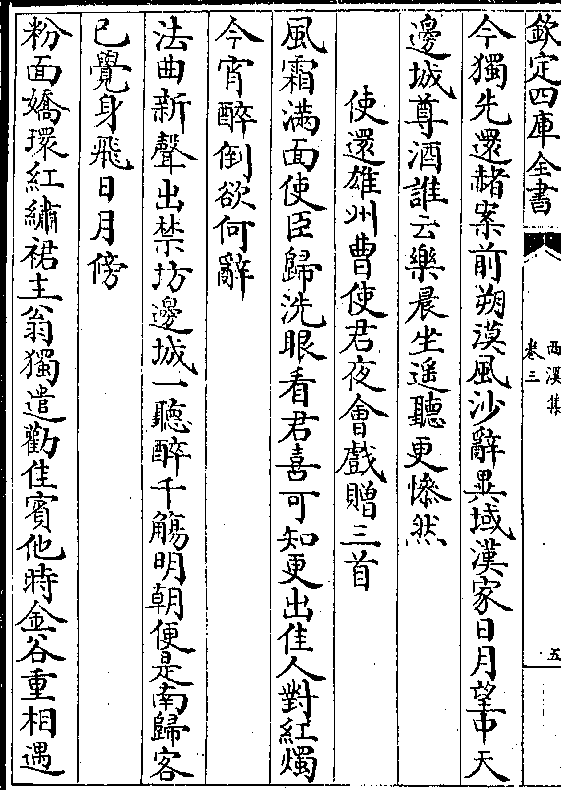 欽定四庫全書
西溪集
卷三
五
今獨先還赭案前朔漠風沙辭異域漢家日月望中天
邊城尊酒誰云樂晨坐遥聽更慘然
使還雄州曹使君夜會戲贈三首
風霜滿面使臣歸洗眼看君喜可知更出佳人對紅燭
今宵醉倒欲何辭
法曲新聲出禁坊邊城一聽醉千觴明朝便是南歸客
已覺身飛日月傍
粉面嬌環紅繡裙主翁獨遣勸佳賓他時金谷重相遇